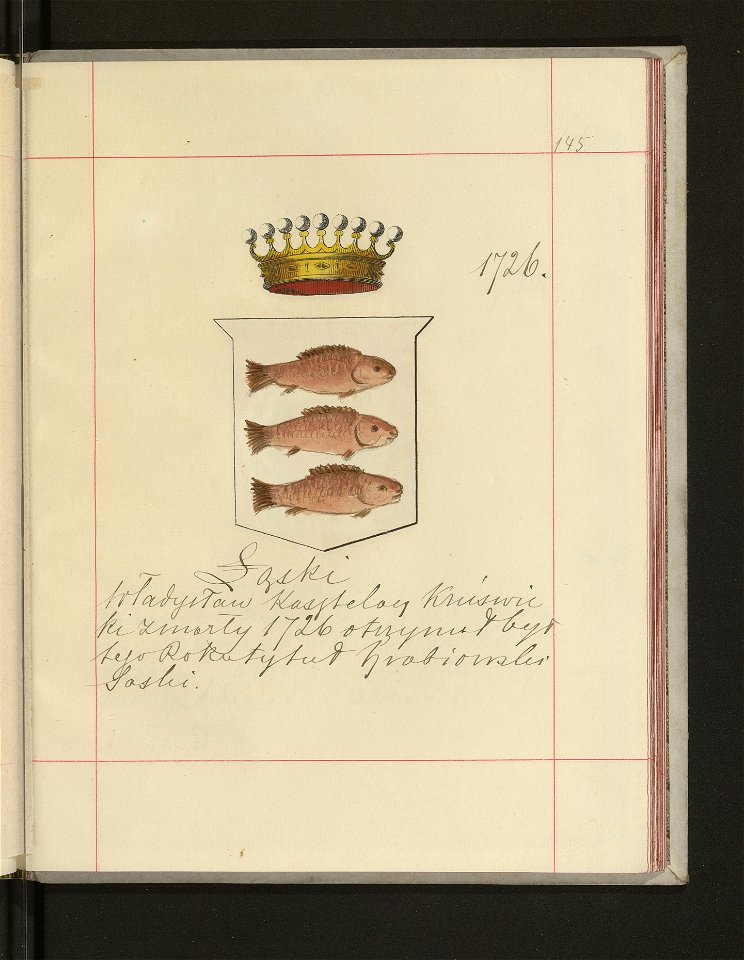 145
1726.
Łąski
Władysław Kasztelan Kruświc
ki zmarły 1726 otrzymał był
tego Roku tytuł hrabiowski
Saski.